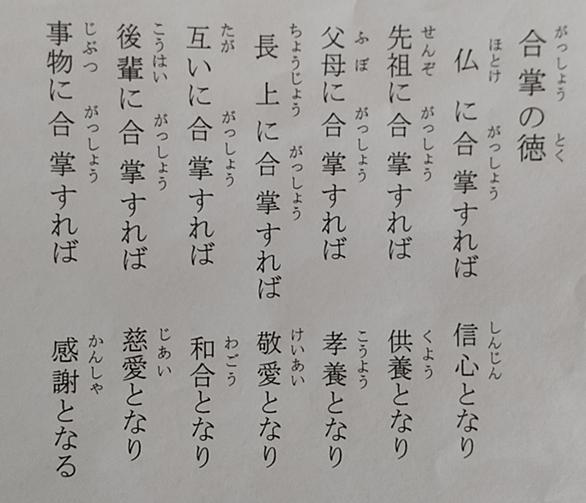 合掌の徳
仏に合掌すれば 信心となり
先祖に合掌すれば 供養となり
父母に合掌すれば 孝養となり
長上に合掌すれば 敬愛となり
互いに合掌すれば 和合となり
後輩に合掌すれば 慈愛となり
事物に合掌すれば 感謝となる